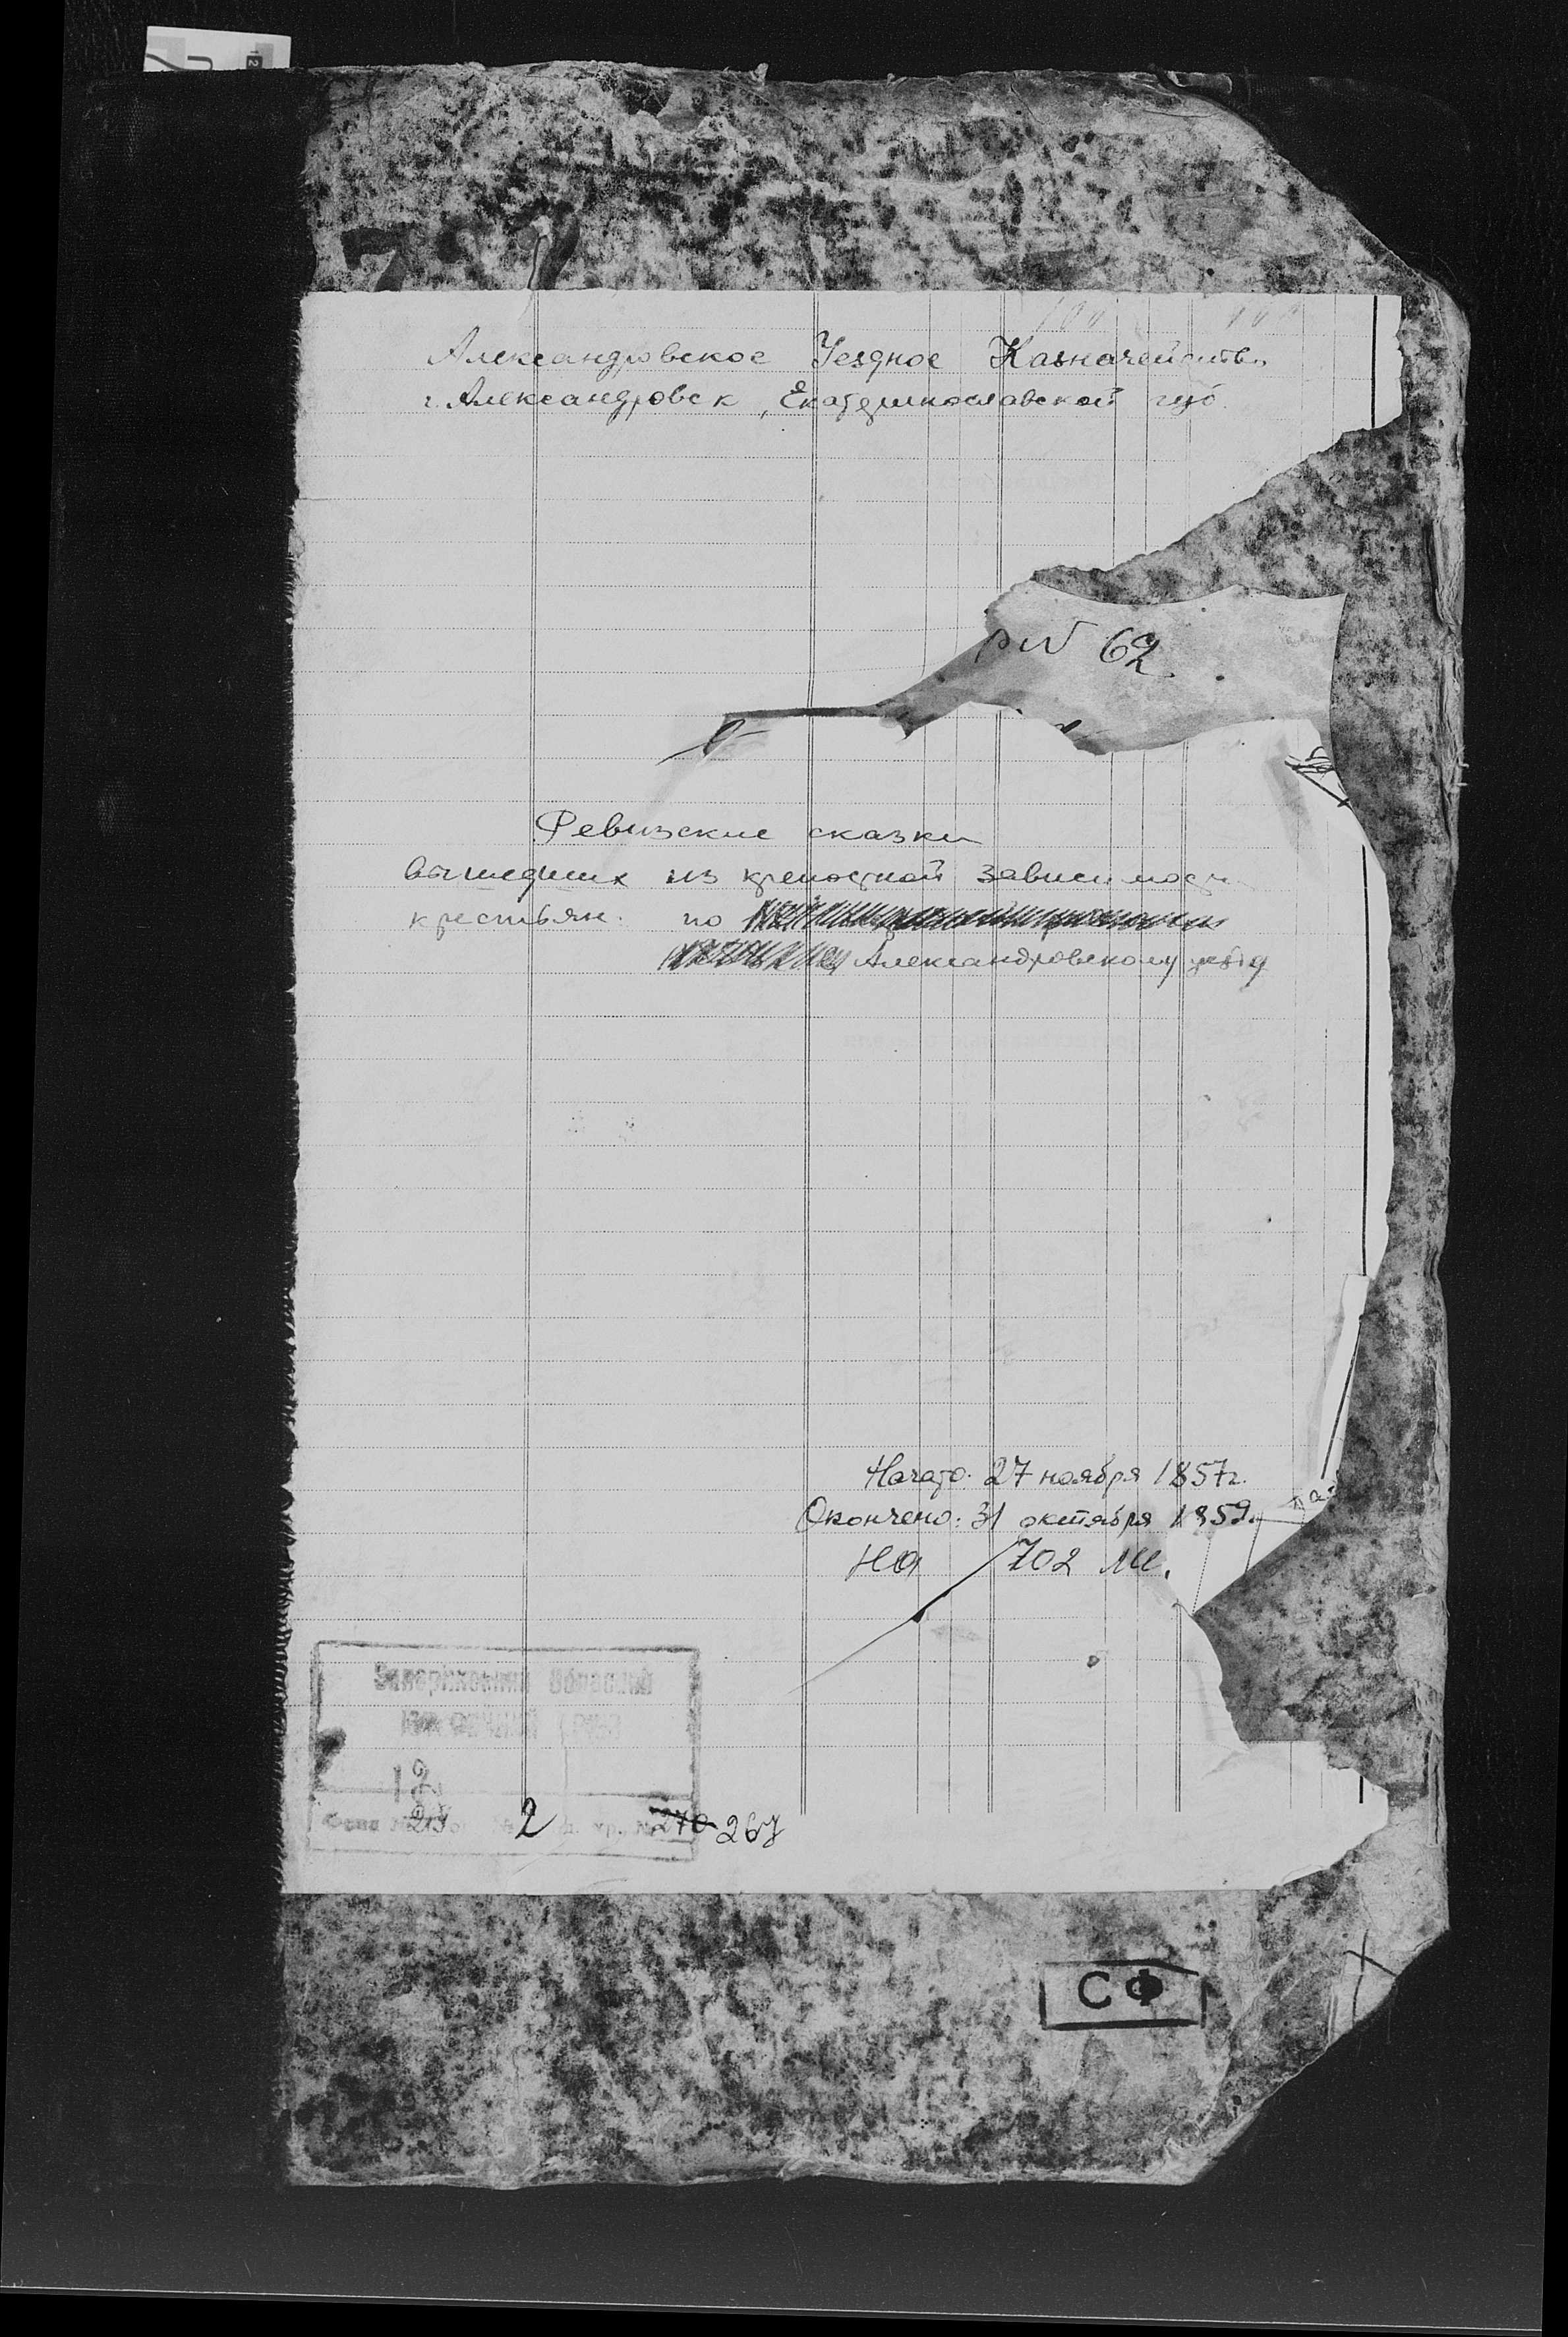 Александровское Уездное Казначейство
г. Александровск, Екатеринославской губ.
№ 62
Ревизские сказки
вышедших из крепостной зависимости
крестьян. по
Александровскому уезду
Начато: 27 ноября 1857г.
Окончено: 31 октября 1859.
на 702 лл.
Запорізький Обласний
12
2
270 267
СФ